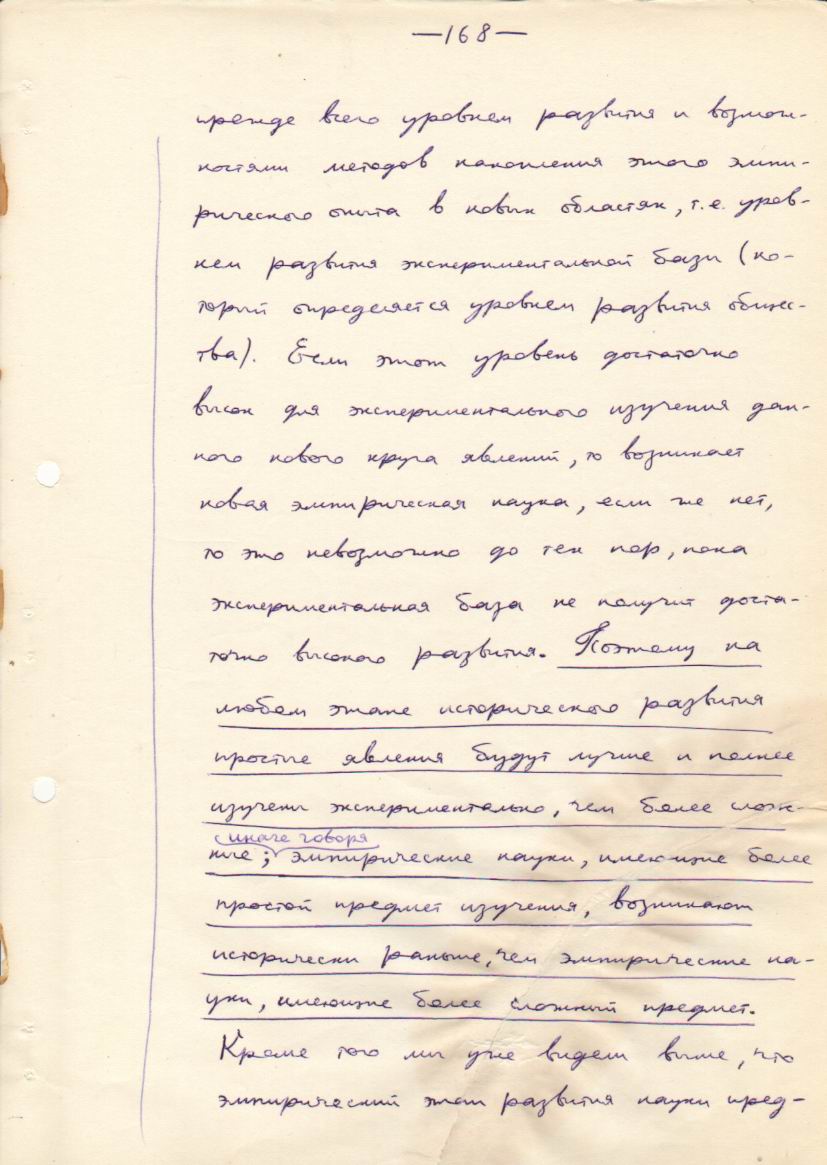 —168—
прежде всего уровнем развития и возмож-
ностями методов накопления этого эмпи-
рического опыта в новых областях, т.е. уров-
нем развития экспериментальной базы (ко-
торый определяется уровнем развития общес-
тва). Если этот уровень достаточно
высок для экспериментального изучения дан-
ного нового круга явлений, то возникает
новая эмпирическая наука, если же нет,
то это невозможно до тех пор, пока
экспериментальная база не получит доста-
точно высокого развития. Поэтому на
любом этапе исторического развития
простые явления будут лучше и полнее
изучены экспериментально, чем более слож-
иначе говоря
ные; эмпирические науки, имеющие более
простой предмет изучения, возникают
исторически раньше, чем эмпирические на-
уки, имеющие более сложный предмет.
Кроме того мы уже видели выше, что
эмпирический этап развития науки пред-